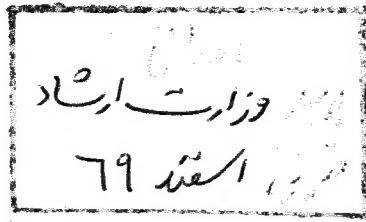 وزارت ارشاد
اسفند ٦٩